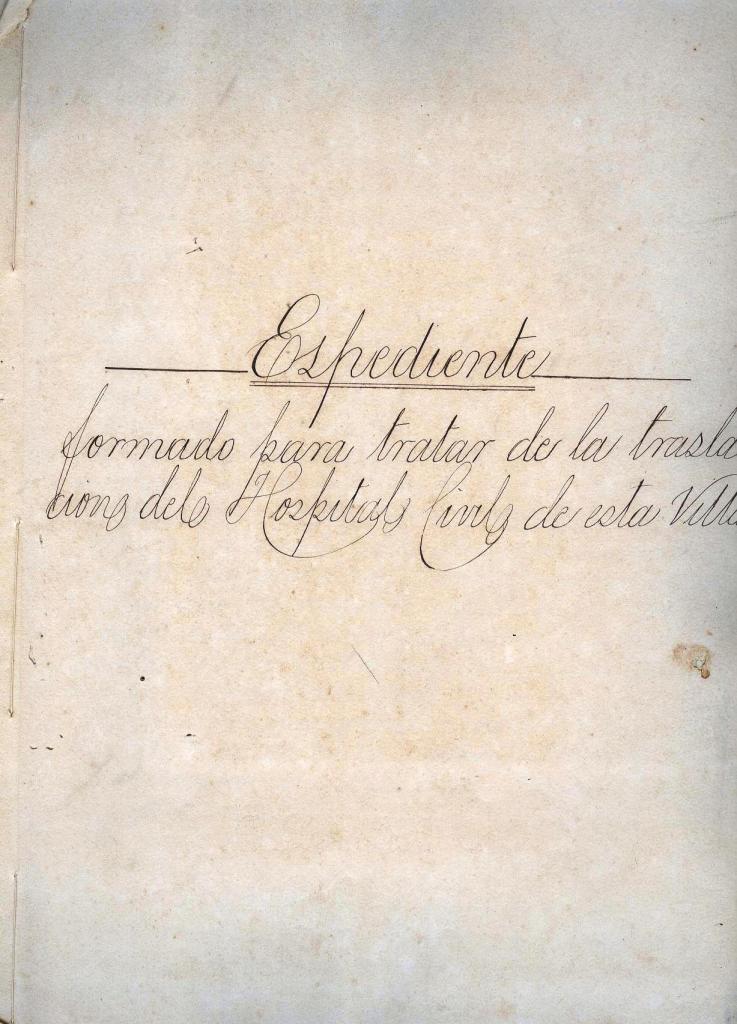 Espediente
formado para tratar de la trasla
cion del Hospital Civil de esta Villa